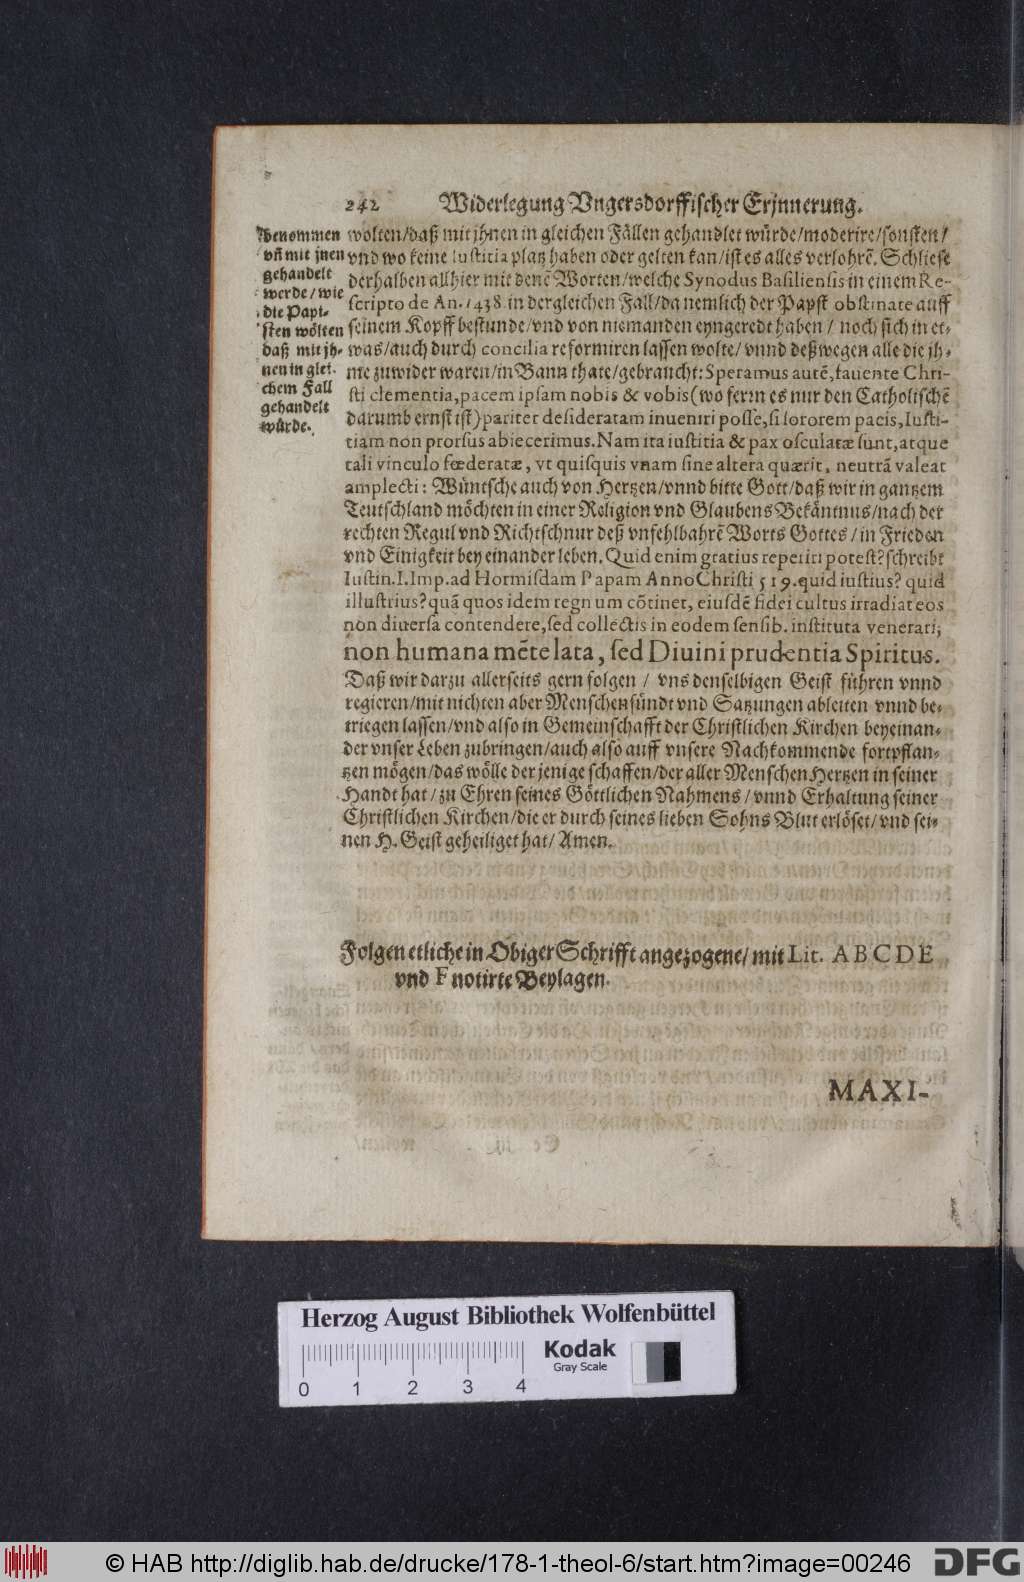 242 Widerlegung Vngersdorffischer Erjnnerung.
benommen
vñ mit jnen
gehandelt
werde / wie
die Papi-
sten wölten
daß mit jh-
nen in glei-
chem Fall
gehandelt
würde.
wolten/daß mit jhnen in gleichen Fällen gehandlet würde/moderire/sonsten/
vnd wo keine Iustitia platz haben oder gelten kan/ist es alles verlohrẽ. Schliese
derhalben allhier mit denẽ Worten/welche Synodus Basiliensis in einem Re-
scripto de An. 1438. in dergleichen Fall/da nemlich der Papst obstinate auff
seinem Kopff bestunde/vnd von niemanden eyngeredt haben / noch sich in et-
was/auch durch concilia reformiren lassen wolte/vnnd deßwegen alle die jh-
me zuwider waren/in Bann thate/gebraucht: Speramus autẽ, fauente Chri-
sti clementia, pacem ipsam nobis & vobis (wofern es nur den Catholischẽ
darumb ernst ist) pariter desideratam inueniri posse, si sororem pacis, Iusti-
tiam non prorsus abiecerimus. Nam ita iustitia & pax osculatæ sunt, atque
tali vinculo fœderatæ, vt quisquis vnam sine altera quærit, neutrã valeat
amplecti: Wüntsche auch von Hertzen/vnnd bitte Gott/daß wir in gantzem
Teutschland möchten in einer Religion vnd Glaubens Bekäntnus/nach der
rechten Regul vnd Richtschnur deß vnfehlbahrẽ Worts Gottes / in Frieden
vnd Einigkeit bey einander leben. Quid enim gratius reperiri potest? schreibt
Iustin. I. Imp. ad Hormisdam Papam Anno Christi 519. quid iustius? quid
illustrius? quã quos idem regnum cõtinet, eiusdẽ fidei cultus irradiat eos
non diuersa contendere, sed collectis in eodem sensib. instituta venerari,
non humana mẽte lata, sed Diuini prudentia Spiritus.
Daß wir darzu allerseits gern folgen / vns denselbigen Geist führen vnnd
regieren/mit nichten aber Menschensündt vnd Satzungen ableiten vnnd be-
triegen lassen/vnd also in Gemeinschafft der Christlichen Kirchen beyeinan-
der vnser Leben zubringen/auch also auff vnsere Nachkommende fortpflan-
tzen mögen/das wölle derjenige schaffen/der aller Menschen Hertzen in seiner
Handt hat/zu Ehren seines Göttlichen Nahmens/vnnd Erhaltung seiner
Christlichen Kirchen/die er durch seines lieben Sohns Blut erlöset/vnd sei-
nen H. Geist geheiliget hat/ Amen.
Folgen etliche in Obiger Schrifft angezogene/ mit Lit. A B C D E
vnd F notirte Beylagen.
MAXI-
Herzog August Bibliothek Wolfenbüttel
Kodak
Gray Scale
0 1 2 3 4
© HAB http://diglib.hab.de/drucke/178-1-theol-6/start.htm?image=00246
DFG